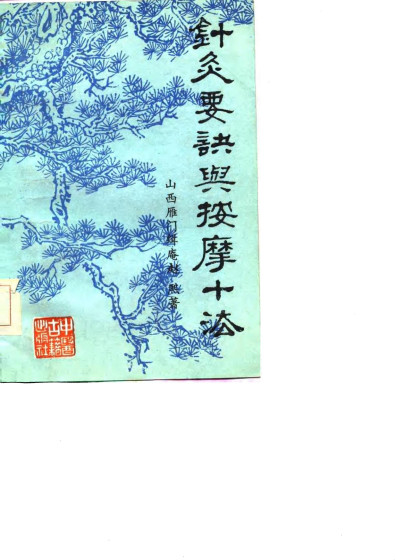 針灸要訣與按摩十法
山西雁门缉庵赵熙著
中醫
古籍
出版社